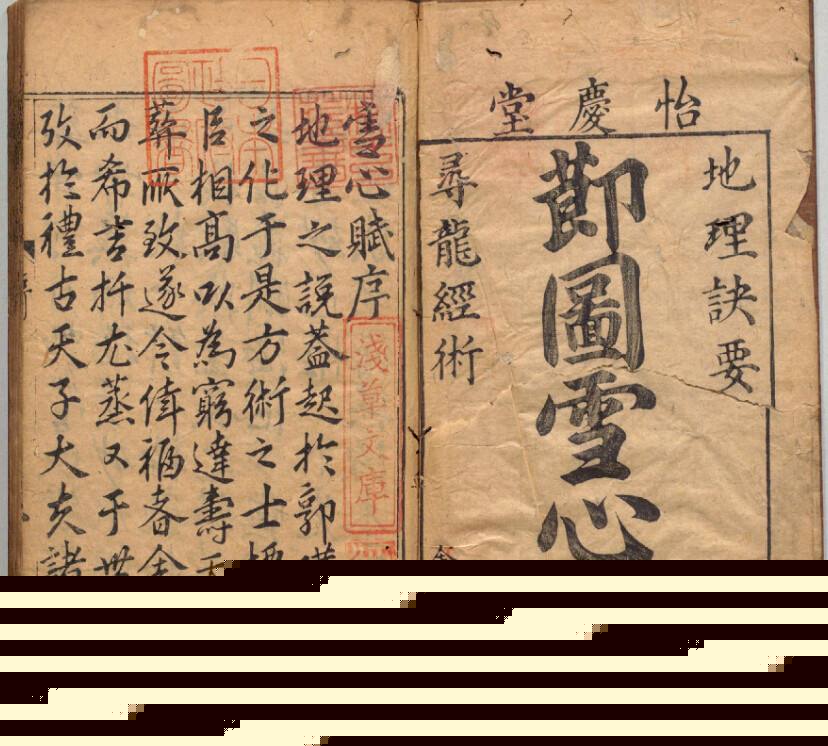 怡慶堂
地理訣要
莭圖雪心
尋龍經術
雪心賦序
淺草文庫
地理之說葢起於郭
之化于是方術之士
相高以為窮達壽
葬所致遂令倖福者
而希吉尤蒸又于世
攷於禮古天子大夫諸